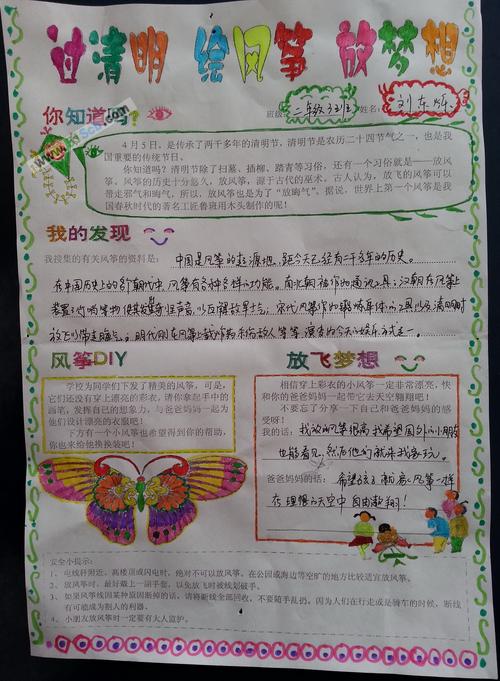 过清明 绘风筝 放梦想
你知道吗?
班级 二年级3班 姓名:刘东
4月5日,是传承了两千多年的清明节,清明节是农历二十四节气之一,也是我
国重要的传统节日。
你知道吗?清明节除了扫墓、插柳、踏青等习俗,还有一个习俗就是——放风
筝。风筝的历史十分悠久,放风筝,源于古代的巫术。古人认为,放飞的风筝可以
带走邪气和晦气,所以,放风筝也是为了“放晦气”。据说,世界上第一个风筝是我
国春秋时代的著名工匠鲁班用木头制作的呢!
我的发现
我搜集的有关风筝的资料是:中国是风筝的起源地,距今天已经有二千多年的历史。
在中国历史上的各个朝代中,风筝有各种各样的功能。南北朝被作为通讯工具;汉朝在风筝上
装置
放飞以带走晦气;明代
风筝DIY
学校为同学们下发了精美的风筝,可是,
它们还没有穿上漂亮的彩衣,请你拿起手中的
画笔,发挥自己的想象力,与爸爸妈妈一起为
他们设计漂亮的衣服吧!
下方有一个小风筝也希望得到你的帮助,
你也来给他换换装吧!
放飞梦想
相信穿上彩衣的小风筝一定非常漂亮,快
和你的爸爸妈妈一起带它去天空翱翔吧!
不要忘了分享一下自己和爸爸妈妈的感
受呀!
我的话:我放的风筝很高,我希望国外的小朋友
也能看见,然后他们就来找我玩。
爸爸妈妈的话:希望孩子能像风筝一样
在理想的天空中自由翱翔!
安全小提示:
1、电线杆附近、高楼顶或闪电时,绝对不可以放风筝。在公园或海边等空旷的地方比较适宜放风筝。
2、放风筝时,最好戴上一副手套,以免放飞时被线划破手。
3、如果风筝线因某种原因断掉的话,请将断线全部回收,不要随手乱扔。因为人们在行走或是骑车的时候,断线
有可能成为割人的利器。
4、小朋友放风筝时一定要有大人监护。